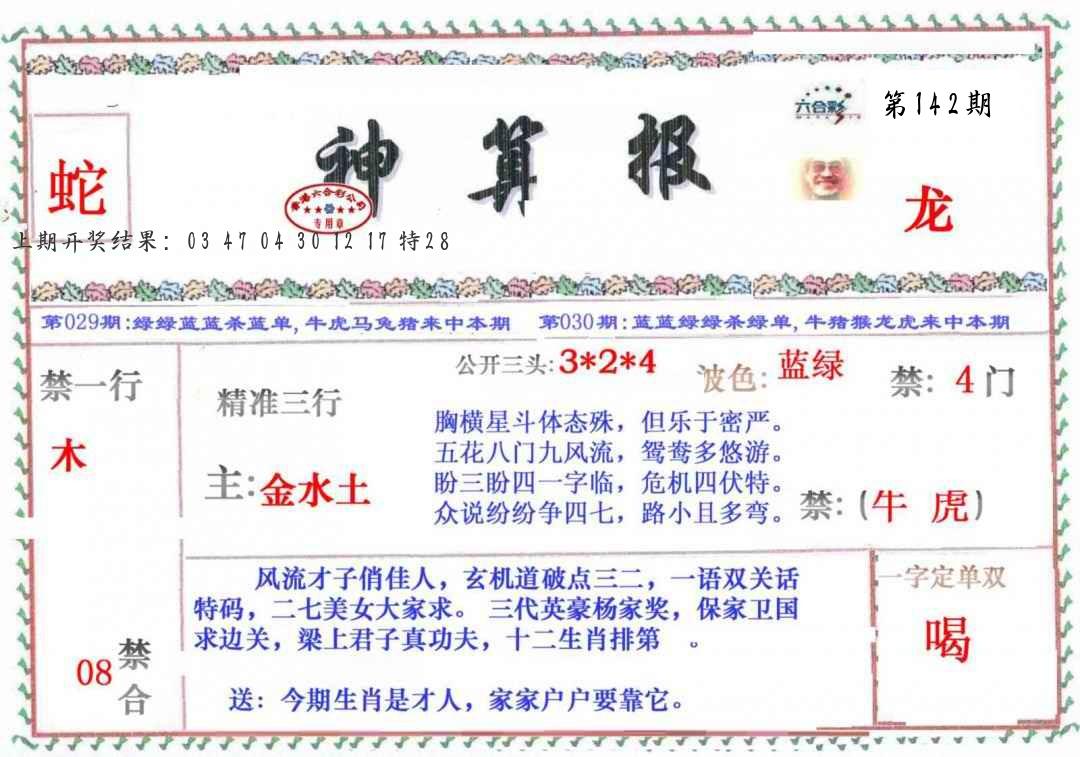 六合彩
第142期
蛇
神算报
龙
香港六合彩公司
专用章
上期开奖结果: 03 47 04 30 12 17 特28
第029期:绿绿蓝蓝杀蓝单,牛虎马兔猪来中本期
第030期:蓝蓝绿绿杀绿单,牛猪猴龙虎来中本期
禁一行
木
精准三行
主:金水土
公开三头:3*2*4
波色:蓝绿
禁: 4门
胸横星斗体态殊，但乐于密严。
五花八门九风流，鸳鸯多悠游。
盼三盼四一字临，危机四伏特。
众说纷纷争四七，路小且多弯。
禁:(牛 虎)
08
禁合
风流才子俏佳人，玄机道破点三二，一语双关话
特码，二七美女大家求。 三代英豪杨家奖，保家卫国
求边关，梁上君子真功夫，十二生肖排第 。
送：今期生肖是才人，家家户户要靠它。
一字定单双
喝